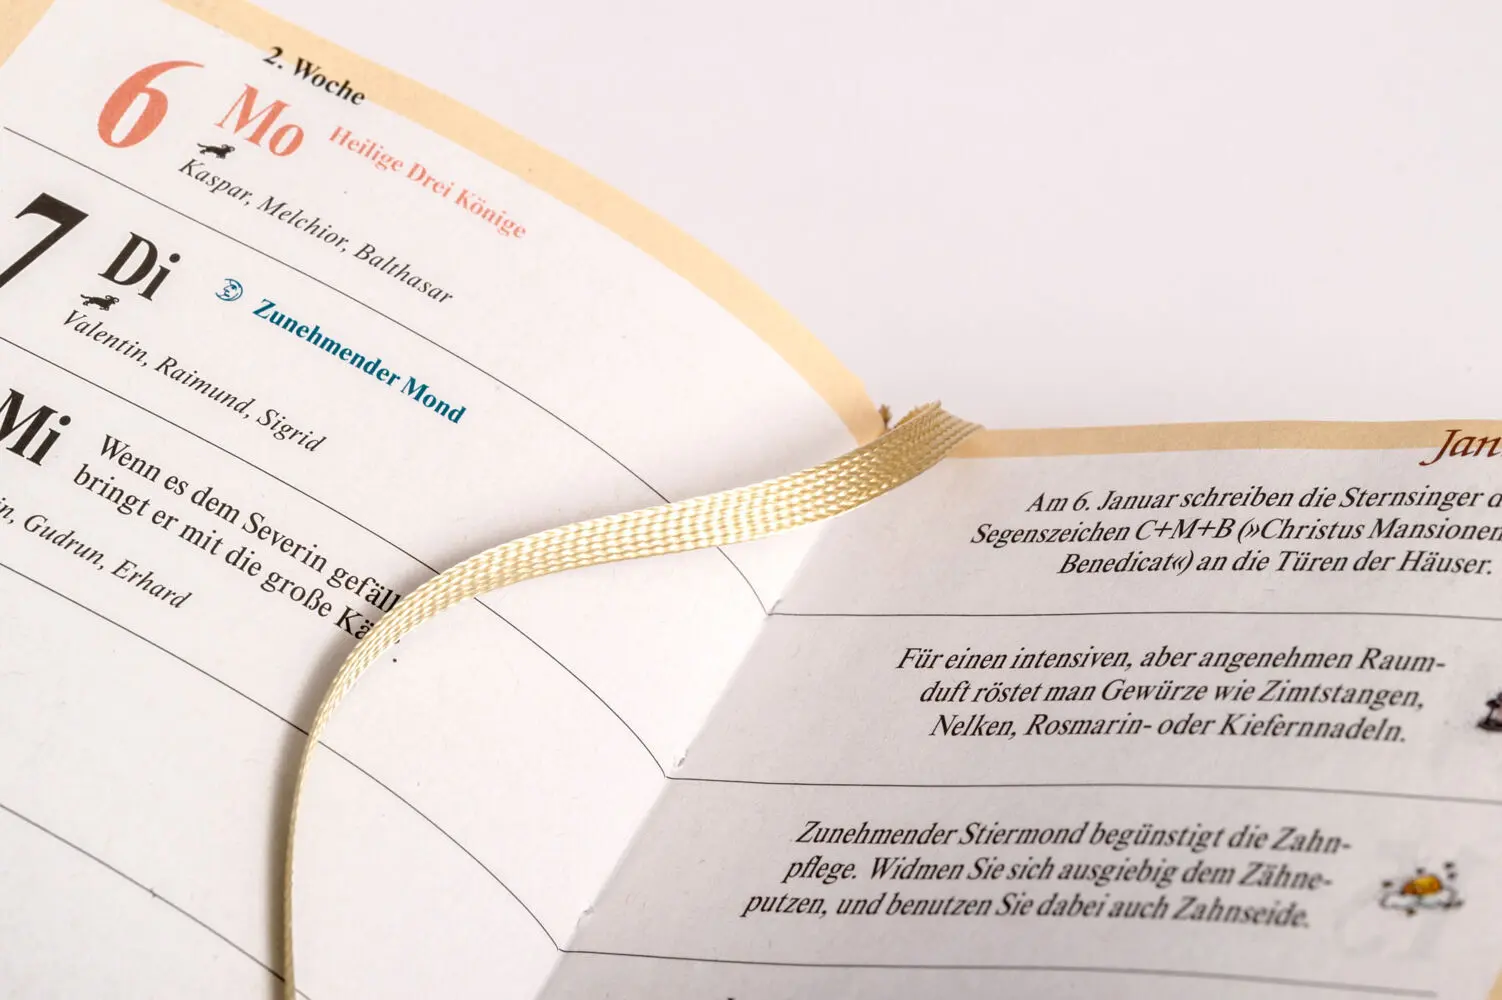 2. Woche
6 Mo Heilige Drei Könige
Kaspar, Melchior, Balthasar
7 Di Zunehmender Mond
Valentin, Raimund, Sigrid
Mi Wenn es dem Severin gefäll
bringt er mit die große Kä
n, Gudrun, Erhard
Jan
Am 6. Januar schreiben die Sternsinger d
Segenszeichen C+M+B (»Christus Mansionen
Benedicat«) an die Türen der Häuser.
Für einen intensiven, aber angenehmen Raum-
duft röstet man Gewürze wie Zimtstangen,
Nelken, Rosmarin- oder Kiefernnadeln.
Zunehmender Stiermond begünstigt die Zahn-
pflege. Widmen Sie sich ausgiebig dem Zähne-
putzen, und benutzen Sie dabei auch Zahnseide.